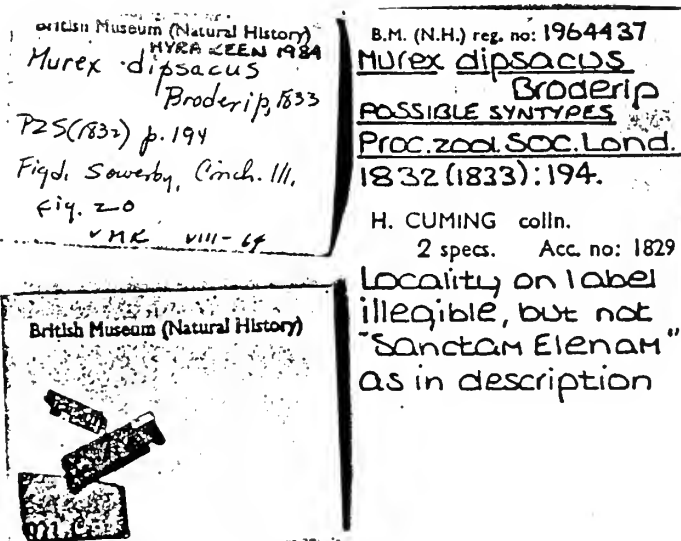 British Museum (Natural History)
MYRA KEEN 1984
Murex dipsacus
Broderip, 1833
PZS (1832) p. 194
Figd. Sowerby, Conch. Ill.
fig. 20
MK VIII-64
British Museum (Natural History)
M.C.
B.M. (N.H.) reg. no: 1964437
Murex dipsacus
Broderip
POSSIBLE SYNTYPES
Proc. zool. Soc. Lond.
1832 (1833): 194.
H. CUMING colln.
2 specs. Acc. no: 1829
Locality on label
illegible, but not
"Sanctam Elenam"
as in description